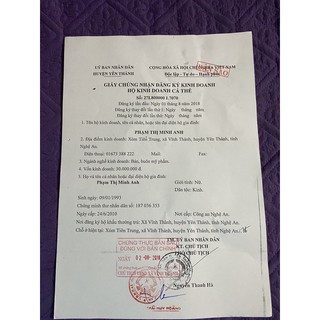 ỦY BAN NHÂN DÂN
HUYỆN YÊN THÀNH
CỘNG HÒA XÃ HỘI CHỦ NGHĨA VIỆT NAM
Độc lập - Tự do - Hạnh phúc
GIẤY CHỨNG NHẬN ĐĂNG KÝ KINH DOANH
HỘ KINH DOANH CÁ THỂ
Đăng ký lần đầu: Ngày 01 tháng 8 năm 2018
Đăng ký thay đổi lần thứ I: Ngày tháng năm
Đăng ký thay đổi lần thứ: Ngày tháng năm
1. Tên hộ kinh doanh, tên cá nhân, hoặc tên đại diện hộ gia đình:
PHẠM THỊ MINH ANH
2. Địa điểm kinh doanh: Xóm Tiên Trung, xã Vĩnh Thành, huyện Yên Thành, tỉnh
Nghệ An.
Điện thoại: 01675 388 222 Mail: Fax:
3. Ngành nghề kinh doanh: Bán, buôn mỹ phẩm.
4. Vốn kinh doanh: 30.000.000 đ.
5. Họ và tên cá nhân hoặc đại diện hộ gia đình:
Phạm Thị Minh Anh Giới tính: Nữ.
Dân tộc: Kinh.
Sinh ngày: 09/01/1993
Chứng minh thư nhân dân số: 187 036 353
Ngày cấp: 24/8/2010 Nơi cấp: Công an Nghệ An.
Nơi đăng ký hộ khẩu thường trú: Xã Vĩnh Thành, huyện Yên Thành, tỉnh Nghệ An.
Chỗ ở hiện tại: Xóm Tiên Trung, xã Vĩnh Thành, huyện Yên Thành, tỉnh Nghệ An.
TM. ỦY BAN NHÂN DÂN
KT. CHỦ TỊCH
PHÓ CHỦ TỊCH
CHỨNG THỰC BẢN SAO
ĐÚNG VỚI BẢN CHÍNH
NGÀY
Nguyễn Thanh Hà